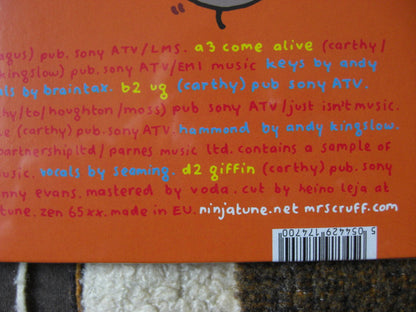 agus) pub. sony ATV/LMS. a3 come alive (carthy/
kingslow) pub. sony ATV/EMI music keys by andy
als by braintax. b2 ug (carthy) pub sony ATV.
hy/to/houghton/moss) pub sony ATV/just isn't music.
le (carthy) pub. sony ATV. hammond by andy kingslow.
partnership ltd/ parnes music ltd. contains a sample of
usic. vocals by seaming. d2 giffin (carthy) pub. sony
nny evans. mastered by voda. cut by heino leja at
tune. zen 65xx. made in EU. ninjatune.net mrscruff.com
5 054429 174700